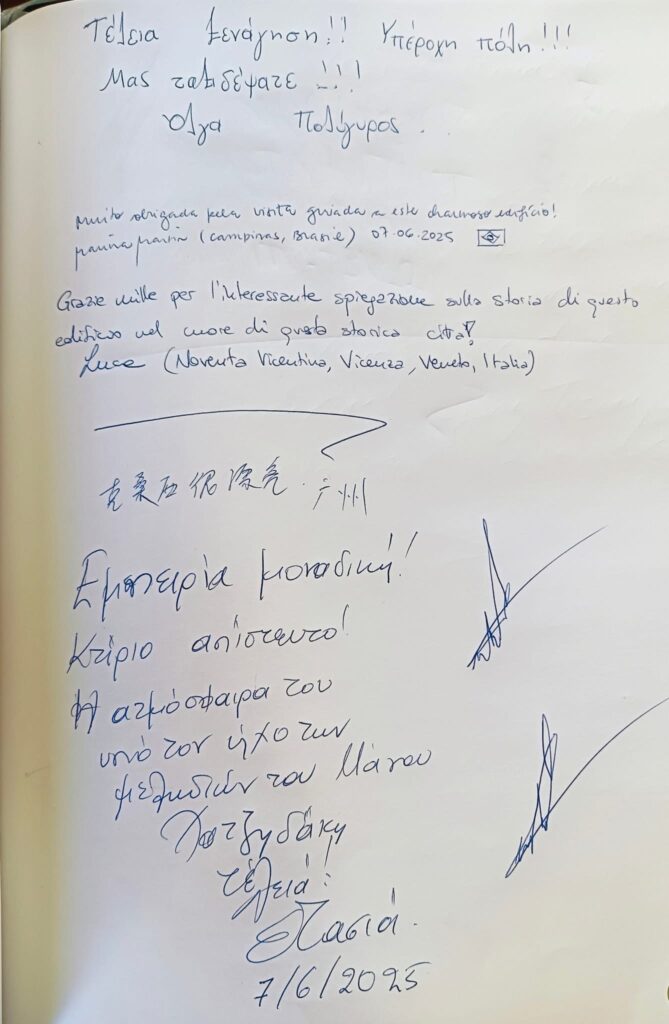 Τέλεια ξενάγηση!! Υπέροχη πόλη!!!
Μας ταξιδέψατε!!!
Όλγα Πολύγυρος.
Muito obrigada pela visita guiada a este charmoso edifício!
(Campinas, Brasil) 07.06.2025
Grazie mille per l'interessante spiegazione sulla storia di questo
edificio nel cuore di questa storica città!
Luca (Noventa Vicentina, Vicenza, Veneto, Italia)
克桑西很漂亮. 广州
Εμπειρία μοναδική!
Κτίριο απίστευτο!
Η ατμόσφαιρα του
υπό τον ήχο των
μελωδιών του Μάνου
Χατζηδάκη
τέλεια!
Στασιά.
7/6/2025